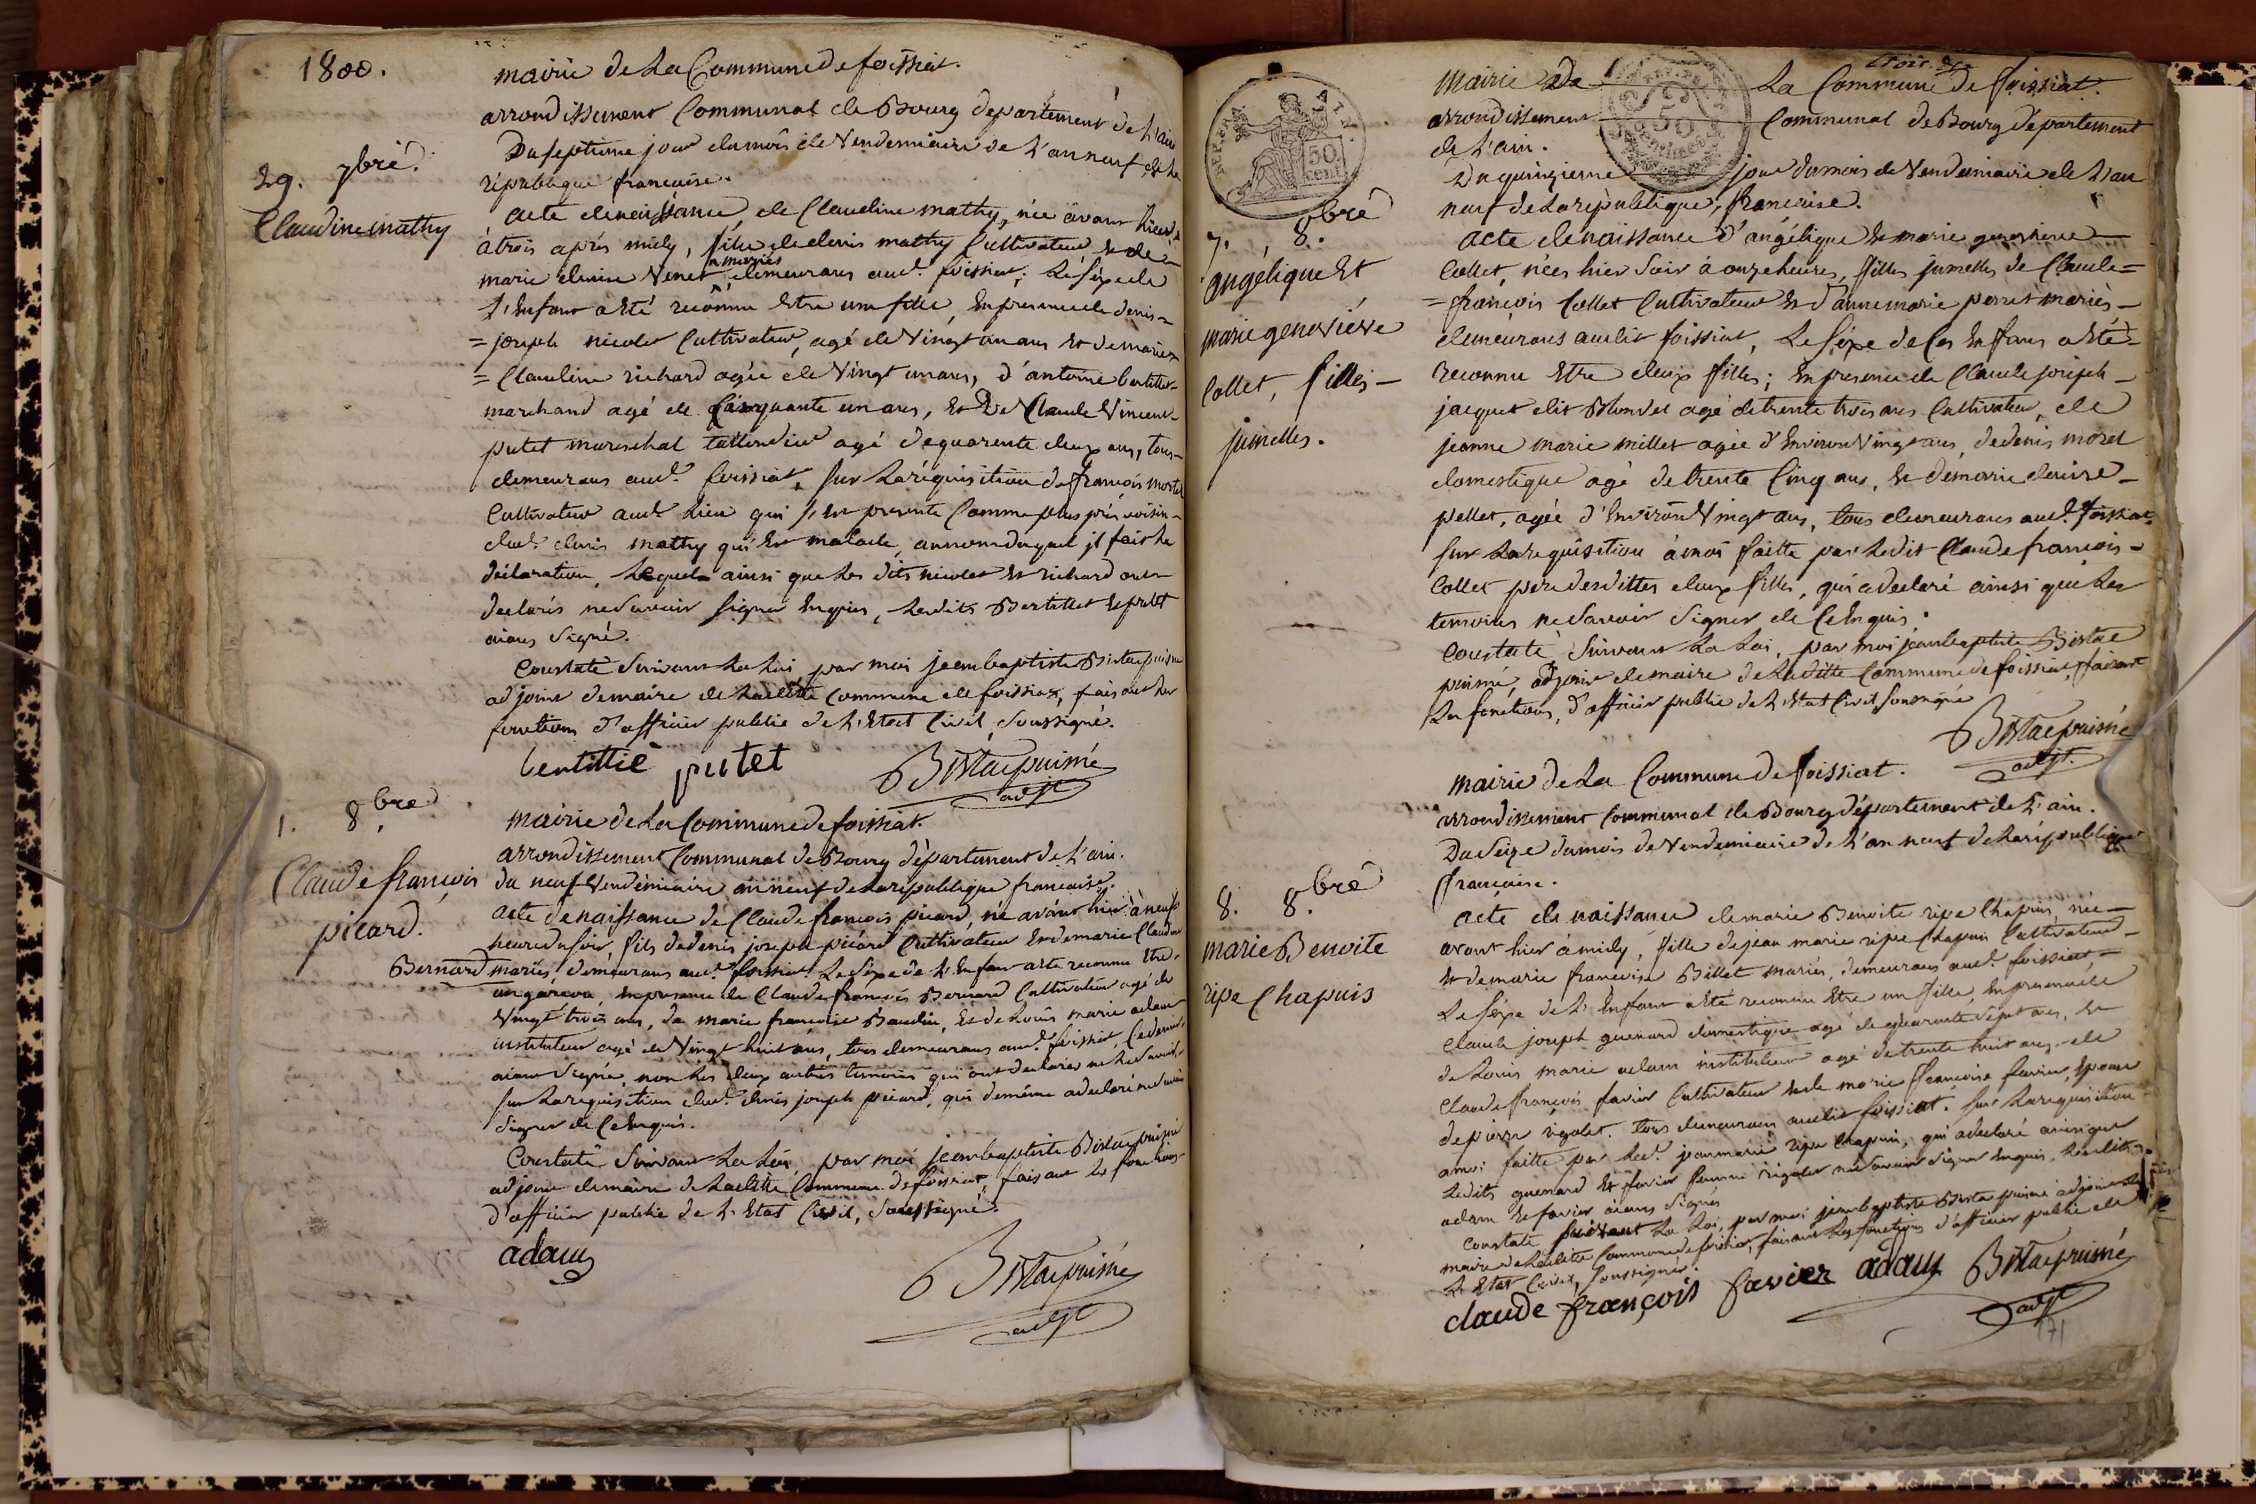 1800.
mairie de La Commune de foissiat.
arrondissement Communal de Bourg departement de L'ain
Du septieme jour du mois de Vendemiaire de L'an neuf de La
république française.
29. 7bre
Claudine mathy
acte de naissance de Claudine mathy, née avant hier
à trois après midy, fille de denis mathy Cultivateur et de
marie Venet, mariés demeurans aud. foissiat; Le Sexe de
L'Enfant a Eté reconnu Etre une fille, En presence de denis=
=joseph nicolet Cultivateur, agé de Vingt un ans Et de marie
=Claudine richard agée de Vingt un ans, d'antoine bentillet
marchand agé de Cinquante un ans, Et De Claude Vincent
putet mareschal taillandier agé de quarente deux ans, tous
demeurans aud. foissiat, Sur La réquisition de françois morel
Cultivateur aud. Lieu qui s'est presenté Comme plus près voisin
dud. denis mathy qui Est malade, au nom duquel il fait la
déclaration, Lequel ainsi que Les dits nicolet Et richard ont
declarés ne Savoir Signer Enquis, Lesdits Bentillet Et putet
aians Signé.
Constaté Suivant La Loi par moi jean baptiste puisné
adjoint de maire de Laditte Commune de foissiat, faisant Les
fonctions d'officier public de L'Etat Civil, Soussigné.
bentillié putet puisné
adjt
1. 8bre
Claude françois
picard.
mairie de La Commune de foissiat.
arrondissement Communal de Bourg département de L'ain.
du neuf Vendémiaire an neuf de La republique française.
acte de naissance de Claude françois picard, né avant hier à neuf
heures du Soir, fils de denis joseph picard Cultivateur Et de marie Claudine
Bernard mariés, demeurans aud. foissiat Le Sexe de L'Enfant a Eté reconnu Etre
un garcon, En presence de Claude françois Bernard Cultivateur agé de
Vingt trois ans, de marie françoise Baudin, Et de Louis marie adam
instituteur agé de Vingt huit ans, tous demeurans aud. foissiat, Ce dernier
aiant Signé, non Les deux autres temoins qui ont declarés ne Le Savoir,
Sur La requisition dud. denis joseph picard, qui de même a declaré ne Savoir
Signer de Ce Enquis.
Constaté Suivant La Loi par moi jean baptiste puisné
adjoint de maire de Laditte Commune de foissiat, faisant Les fonctions
d'officier public de L'Etat Civil, Soussigné.
adam
puisné
adjt
REP. FRA.
50
cent.
mairie De La Commune De foissiat.
arrondissement Communal de Bourg département
de L'ain.
Du quinzieme jour du mois de Vendemiaire de L'an
neuf de La république, française.
7. 8bre
angélique Et
marie genevièvre
Collet, filles
jumelles.
acte de naissance d'angélique Et marie genevieve
Collet, nées hier Soir à onze heures, filles jumelles de Claude=
=françois Collet Cultivateur Et d'anne marie perret mariés
demeurans audit foissiat, Le Sexe de Ces Enfans a Eté
reconnu Etre deux filles; En presence de Claude joseph
jacquet dit Blondet agé de trente trois ans Cultivateur, de
jeanne marie millet agée d'Environ Vingt ans, de denis morel
domestique agé de trente Cinq ans, Et de marie
pellet, agée d'Environ Vingt ans, tous demeurans aud. foissiat
Sur La requisition à moi faitte par Ledit Claude francois
Collet pere desdittes deux filles, qui a declaré ainsi que Les
temoins ne Savoir Signer de Ce Enquis.
Constaté Suivant La Loi, par moi jean baptiste
puisné, adjoint de maire de Laditte Commune de foissiat, faisant
Les fonctions, d'officier public de L'Etat Civil Soussigné
puisné
adjt.
mairie de La Commune De foissiat.
arrondissement Communal de Bourg département de L'ain.
Du Seize du mois de Vendemiaire de L'an neuf de La république
française.
8. 8bre
marie Benoite
ripe Chapuis
acte de naissance de marie Benoite ripe Chapuis, née
avant hier à midy, fille de jean marie ripe Chapuis Cultivateur
Et de marie francoise Billet mariés, demeurans aud. foissiat
Le Sexe de L'Enfant a Eté reconnu Etre un fille, En presence de
Claude joseph guenard domestique agé de quarante Sept ans, Et
de Louis marie adam instituteur agé de trente huit ans, de
Claude françois favier Cultivateur Et de marie françoise favier, Epouse
de pierre rigolet. tous demeurans audit foissiat. Sur La requisition
a moi faitte par Led. jean marie ripe Chapuis, qui a declaré ainsi que
Ledits guenard Et favier femme rigolet ne Savoir Signer Enquis, Lesdits
adam Et favier aians Signés
Constaté Suivant La Loi, par moi jean baptiste puisné adjoint de
maire de Laditte Commune de foissiat, faisant Les fonctions d'officier public de
L'Etat Civil, Soussigné.
claude françois favier adam puisné
adjt
171